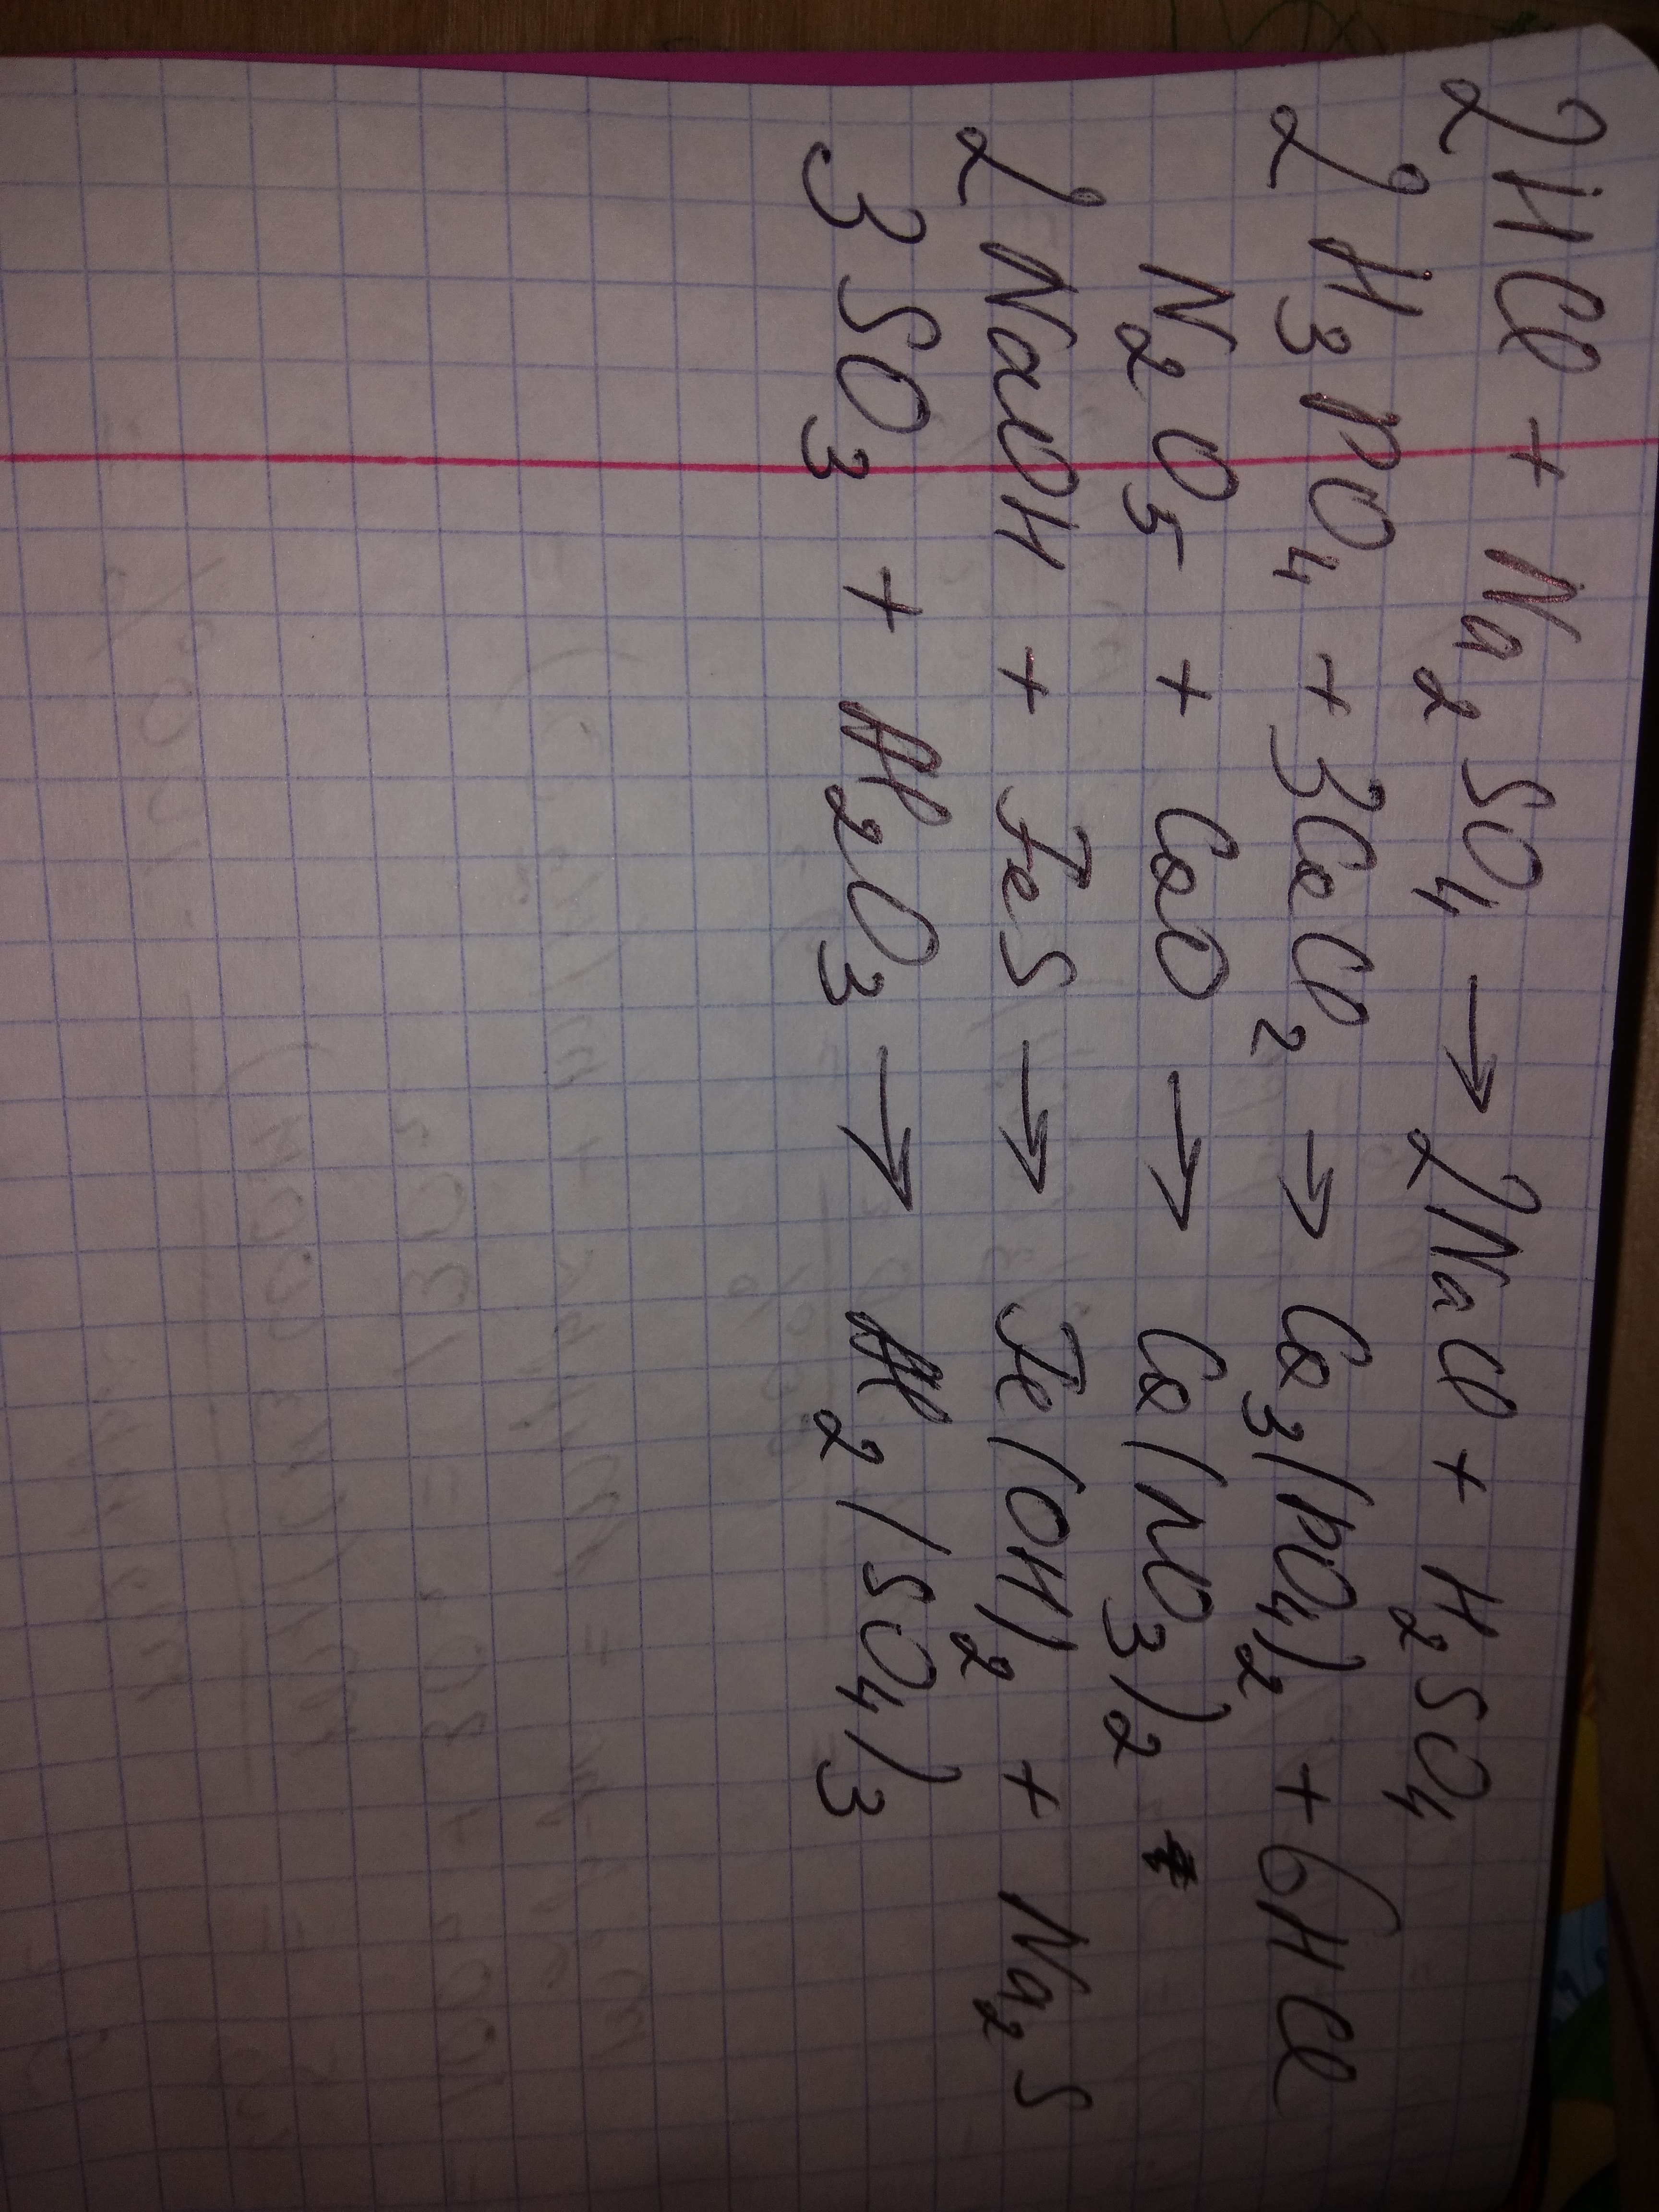 2HCl + Na2SO4 → 2NaCl + H2SO4
2H3PO4 + 3CaCl2 → Ca3(PO4)2 + 6HCl
N2O5 + CaO → Ca(NO3)2
2NaOH + FeS → Fe(OH)2 + Na2S
3SO3 + Al2O3 → Al2(SO4)3